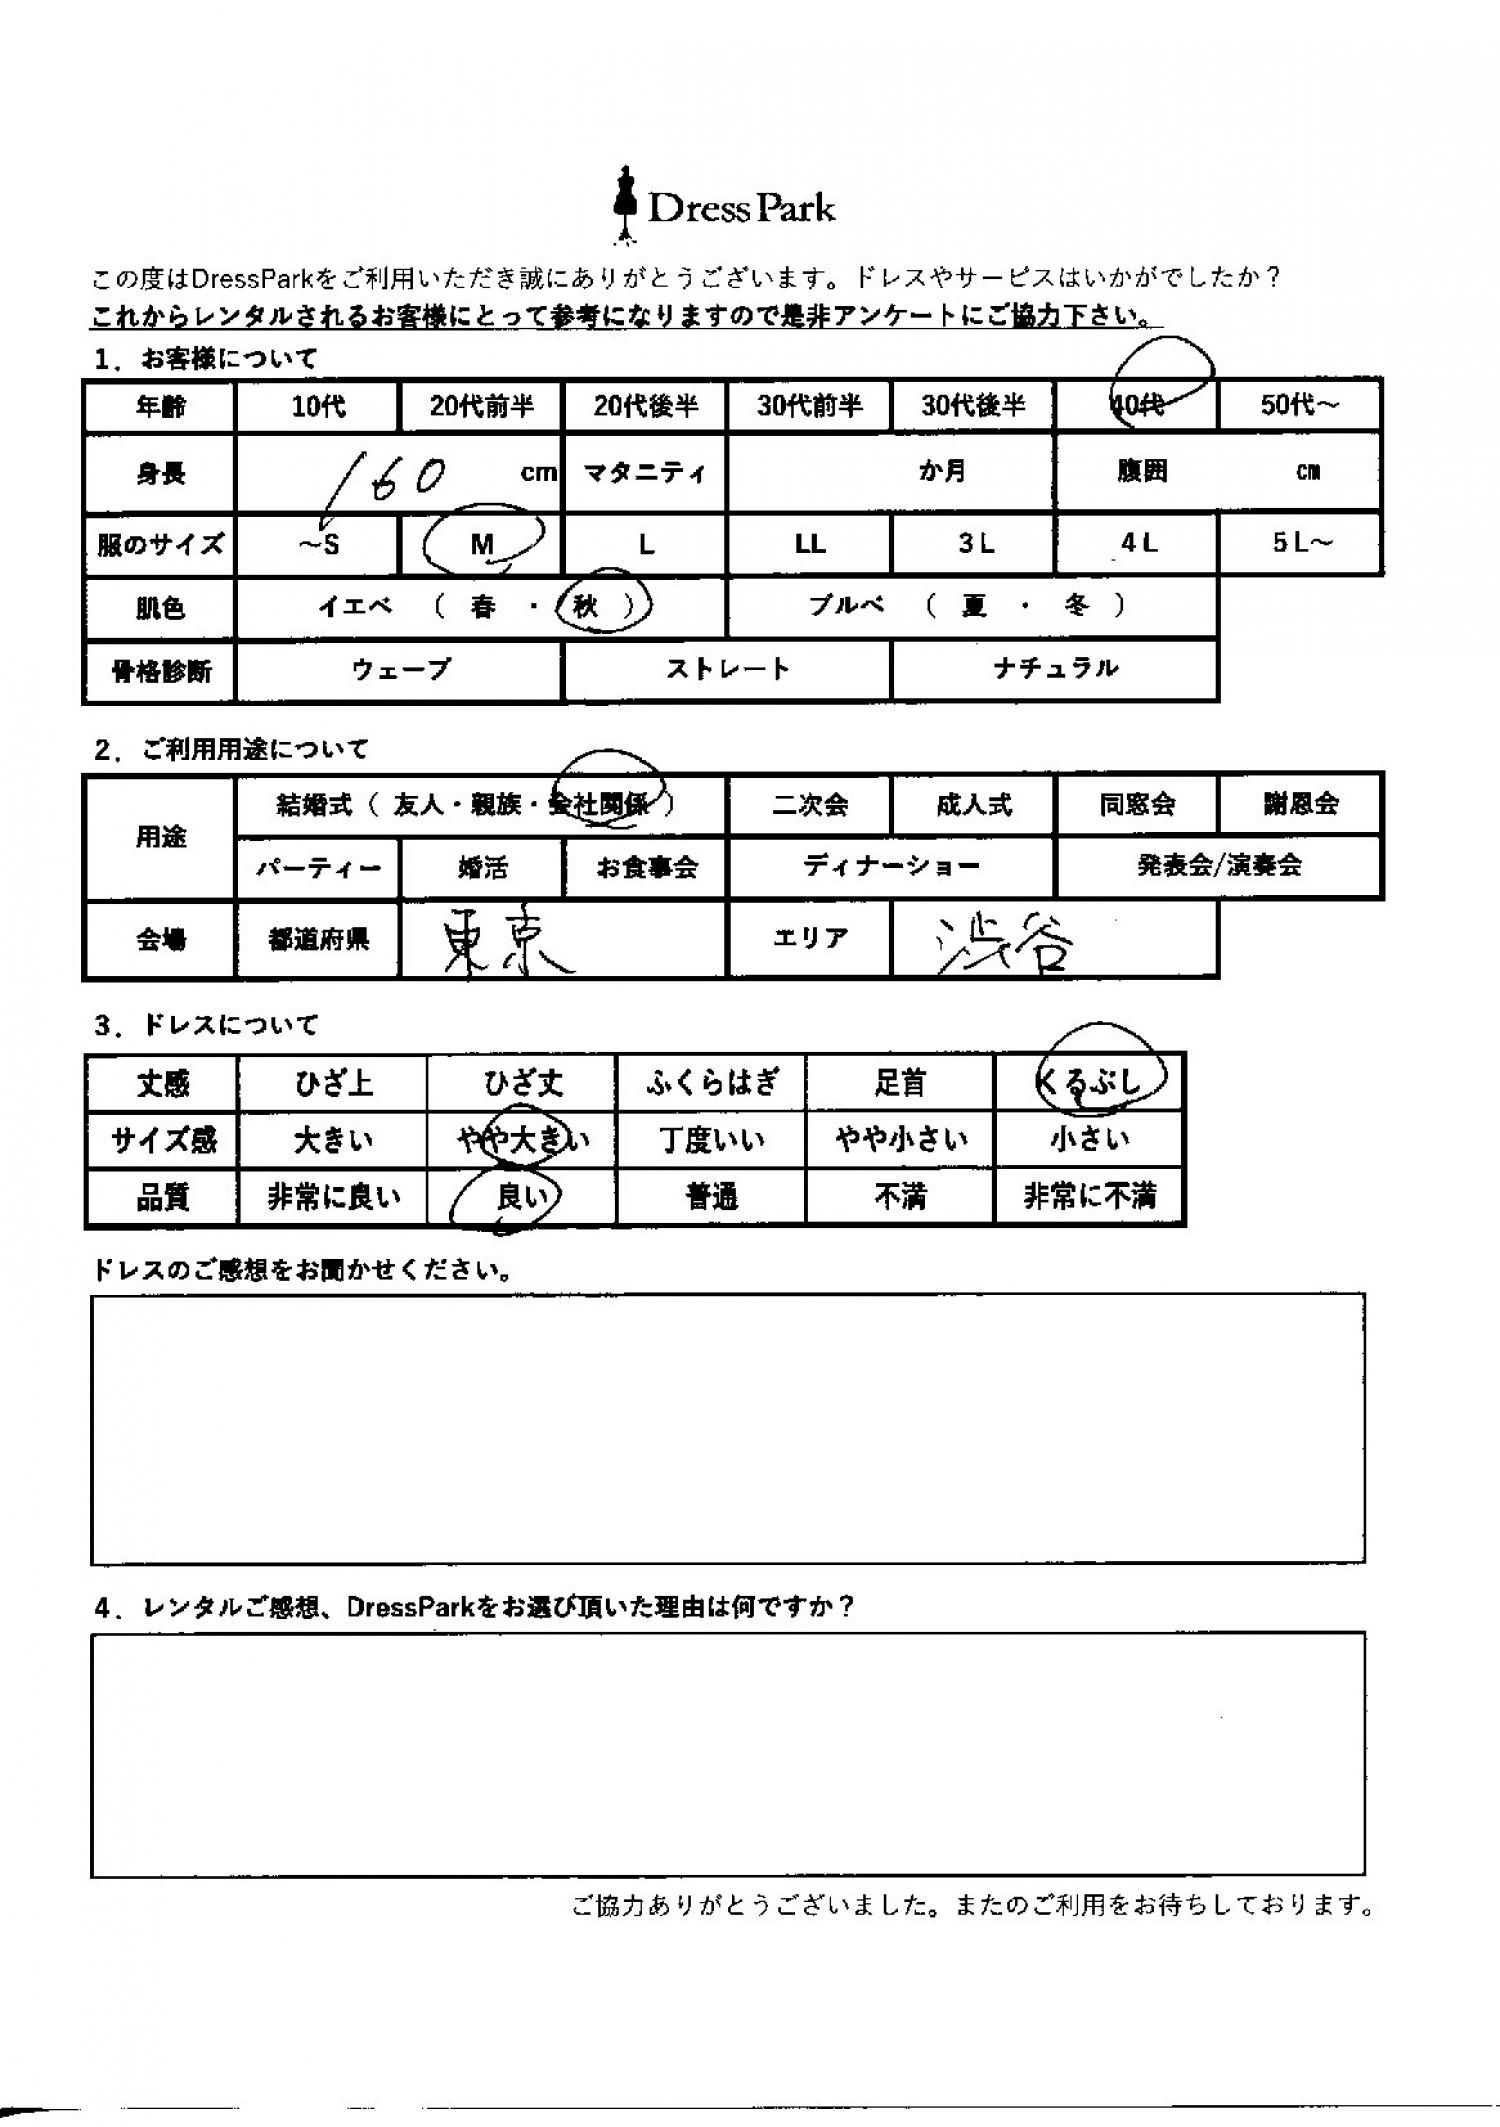 Dress Park
この度はDressParkをご利用いただき誠にありがとうございます。ドレスやサービスはいかがでしたか？
これからレンタルされるお客様にとって参考になりますので是非アンケートにご協力下さい。
1．お客様について
年齢 10代 20代前半 20代後半 30代前半 30代後半 40代 50代～
身長 160 cm マタニティ か月 腹囲 cm
服のサイズ ～S M L LL 3L 4L 5L～
肌色 イエベ （ 春 ・ 秋 ） ブルベ （ 夏 ・ 冬 ）
骨格診断 ウェーブ ストレート ナチュラル
2．ご利用用途について
用途 結婚式（ 友人・親族・会社関係 ） 二次会 成人式 同窓会 謝恩会
パーティー 婚活 お食事会 ディナーショー 発表会/演奏会
会場 都道府県 東京 エリア 渋谷
3．ドレスについて
丈感 ひざ上 ひざ丈 ふくらはぎ 足首 くるぶし
サイズ感 大きい やや大きい 丁度いい やや小さい 小さい
品質 非常に良い 良い 普通 不満 非常に不満
ドレスのご感想をお聞かせください。
4．レンタルご感想、DressParkをお選び頂いた理由は何ですか？
ご協力ありがとうございました。またのご利用をお待ちしております。